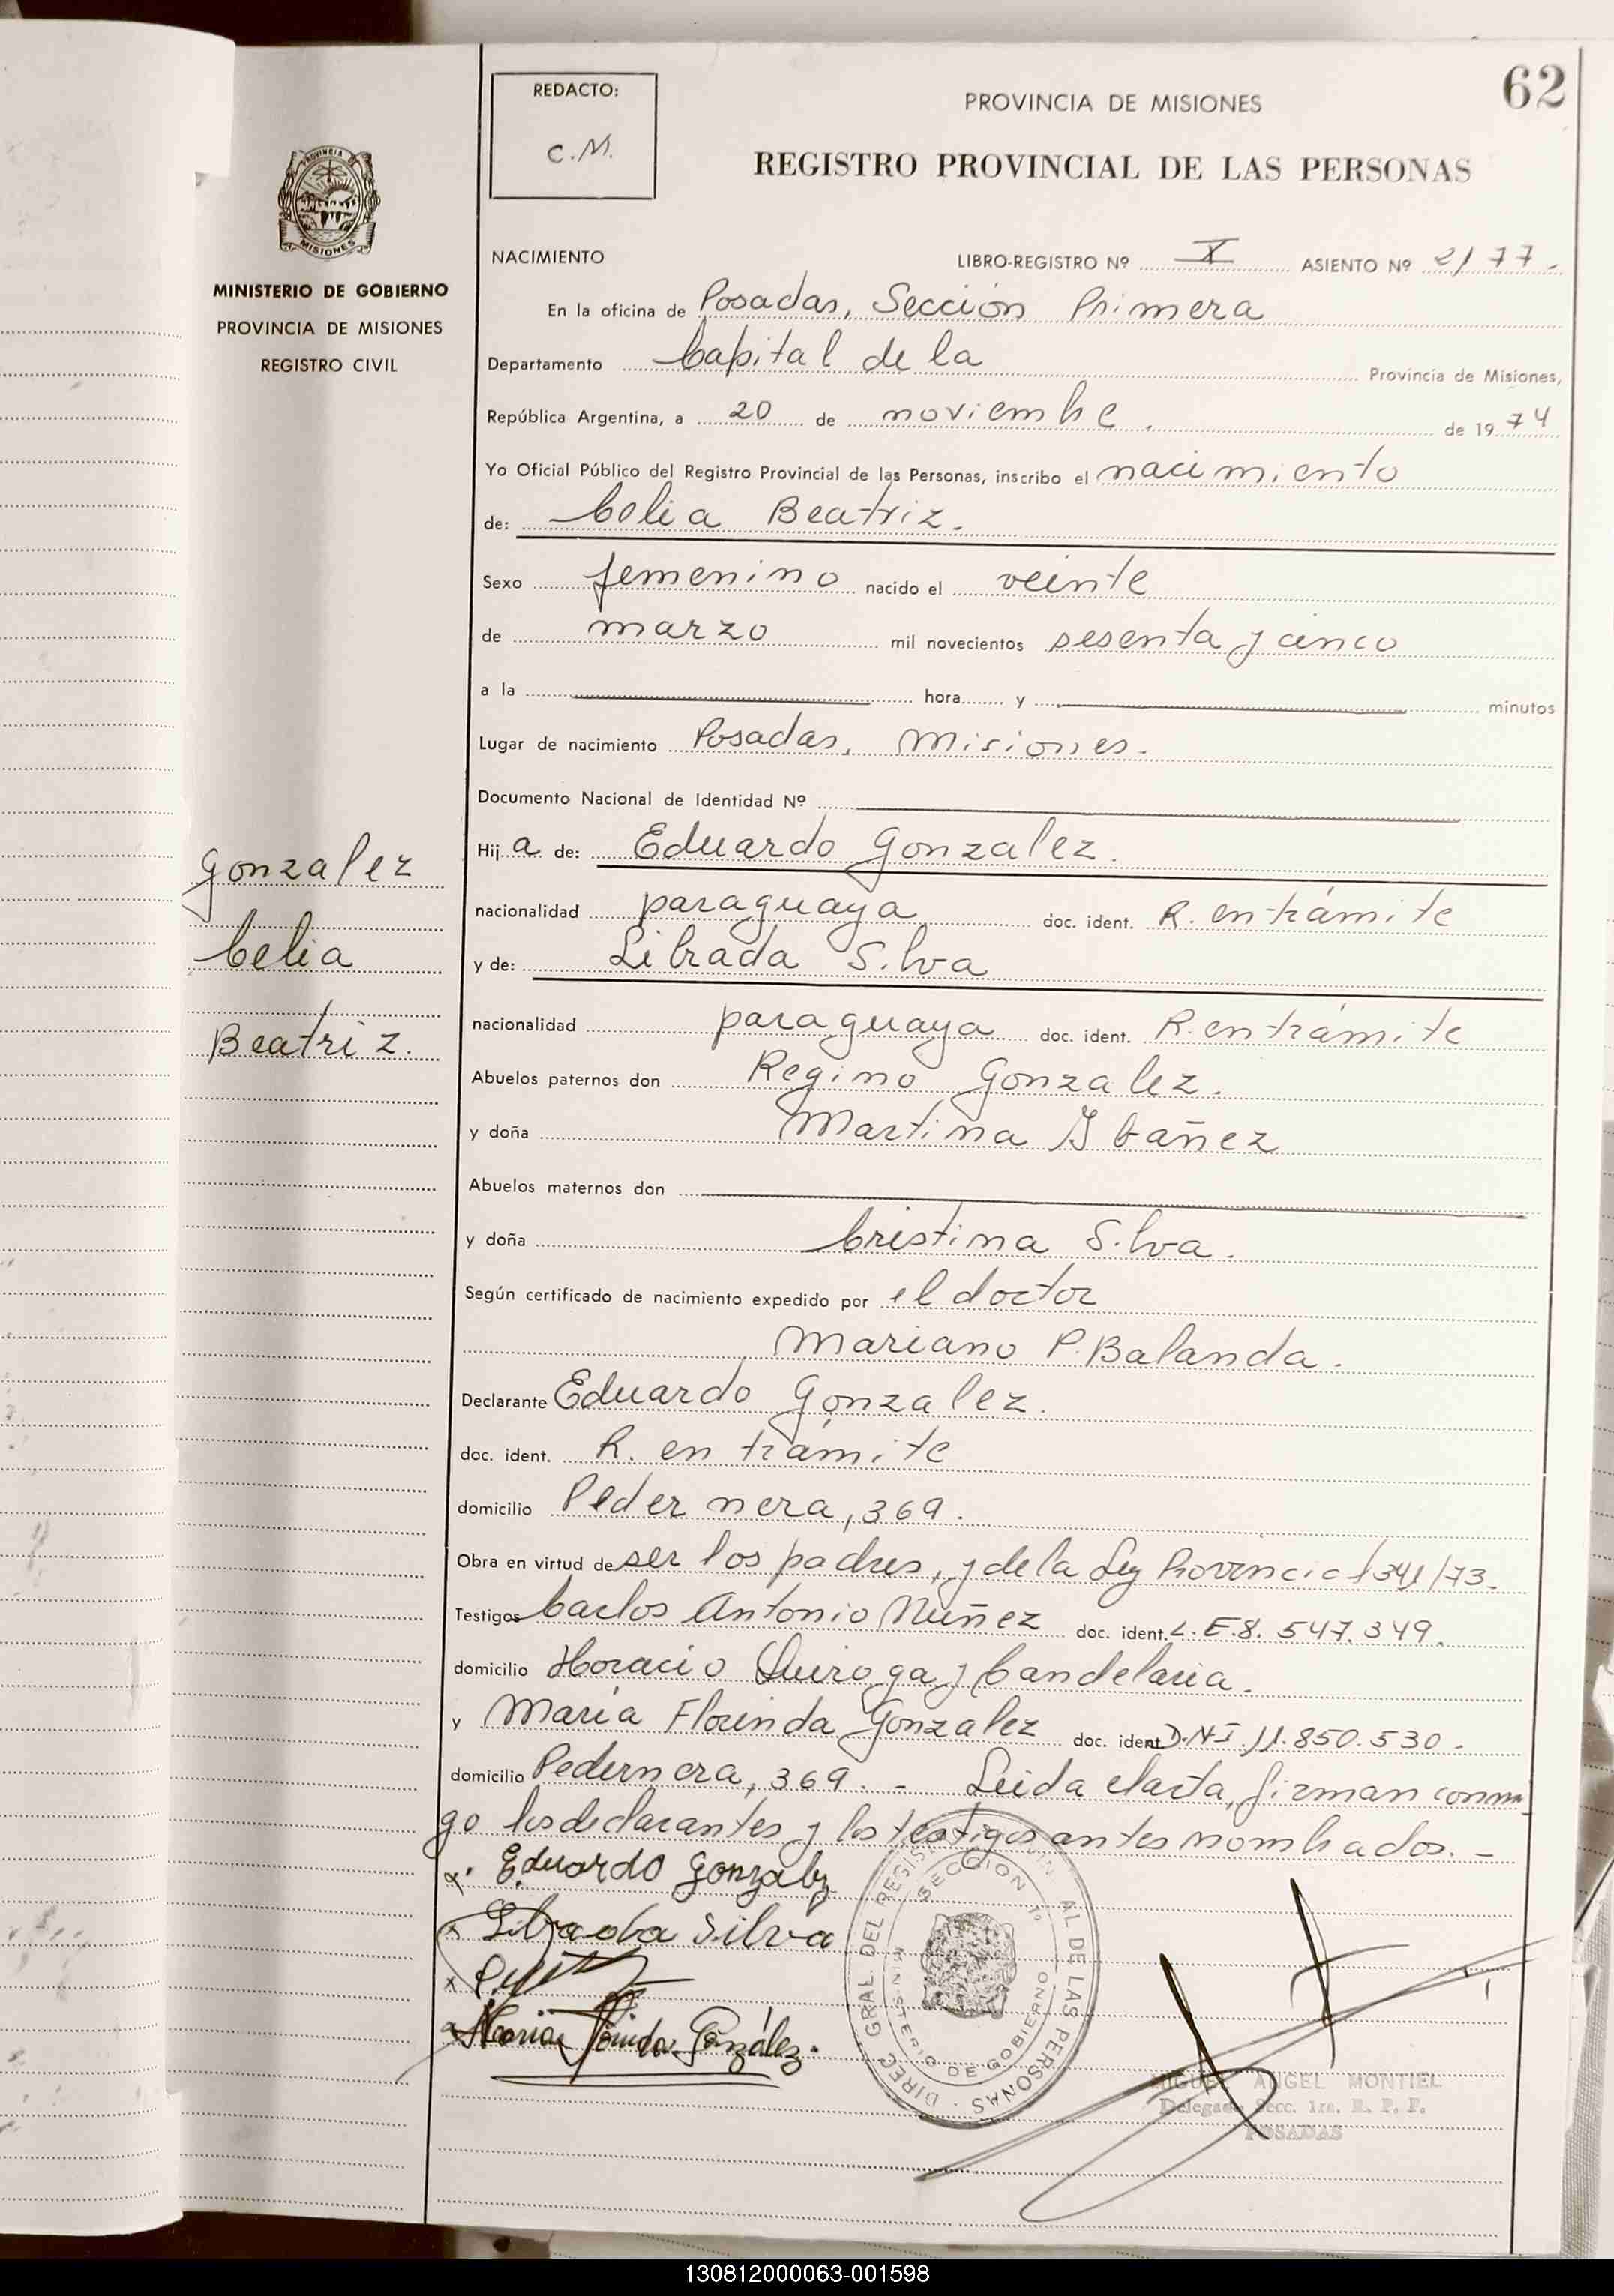 62
REDACTO:
C.M.
PROVINCIA DE MISIONES
REGISTRO PROVINCIAL DE LAS PERSONAS
PROVINCIA DE
MISIONES
MINISTERIO DE GOBIERNO
PROVINCIA DE MISIONES
REGISTRO CIVIL
NACIMIENTO LIBRO-REGISTRO Nº X ASIENTO Nº 2177.
En la oficina de Posadas, Sección Primera
Departamento Capital de la Provincia de Misiones,
República Argentina, a 20 de noviembre. de 1974
Yo Oficial Público del Registro Provincial de las Personas, inscribo el nacimiento
de: Celia Beatriz.
Sexo femenino nacido el veinte
de marzo mil novecientos sesenta y cinco
a la hora y minutos
Lugar de nacimiento Posadas, Misiones.
Documento Nacional de Identidad Nº
Hija de: Eduardo Gonzalez.
nacionalidad paraguaya doc. ident. R. en trámite
y de: Librada Silva
nacionalidad paraguaya doc. ident. R. en trámite
Abuelos paternos don Regino Gonzalez.
y doña Martina Ibañez
Abuelos maternos don
y doña Cristina Silva.
Según certificado de nacimiento expedido por el doctor
Mariano P. Balanda.
Declarante Eduardo Gonzalez.
doc. ident. R. en trámite
domicilio Pedernera, 369.
Obra en virtud de ser los padres, y de la Ley Provincial 341/73.
Testigos Carlos Antonio Nuñez doc. ident. L.E.8.547.349.
domicilio Horacio Quiroga y Candelaria.
y María Florinda Gonzalez doc. ident D.N.I.11.850.530.
domicilio Pedernera, 369. - Leida el acta, firman conmi
go los declarantes y los testigos antes nombrados. -
Gonzalez
Celia
Beatriz.
x. Eduardo Gonzalez
x Librada Silva
x
x Maria Florinda González.
DIREC. GRAL. DEL REGIS PROVINCIAL DE LAS PERSONAS
SECCION 1º
MINISTERIO DE GOBIERNO
MIGUEL ANGEL MONTIEL
Delegado Secc. 1ra. R. P. P.
POSADAS
130812000063-001598